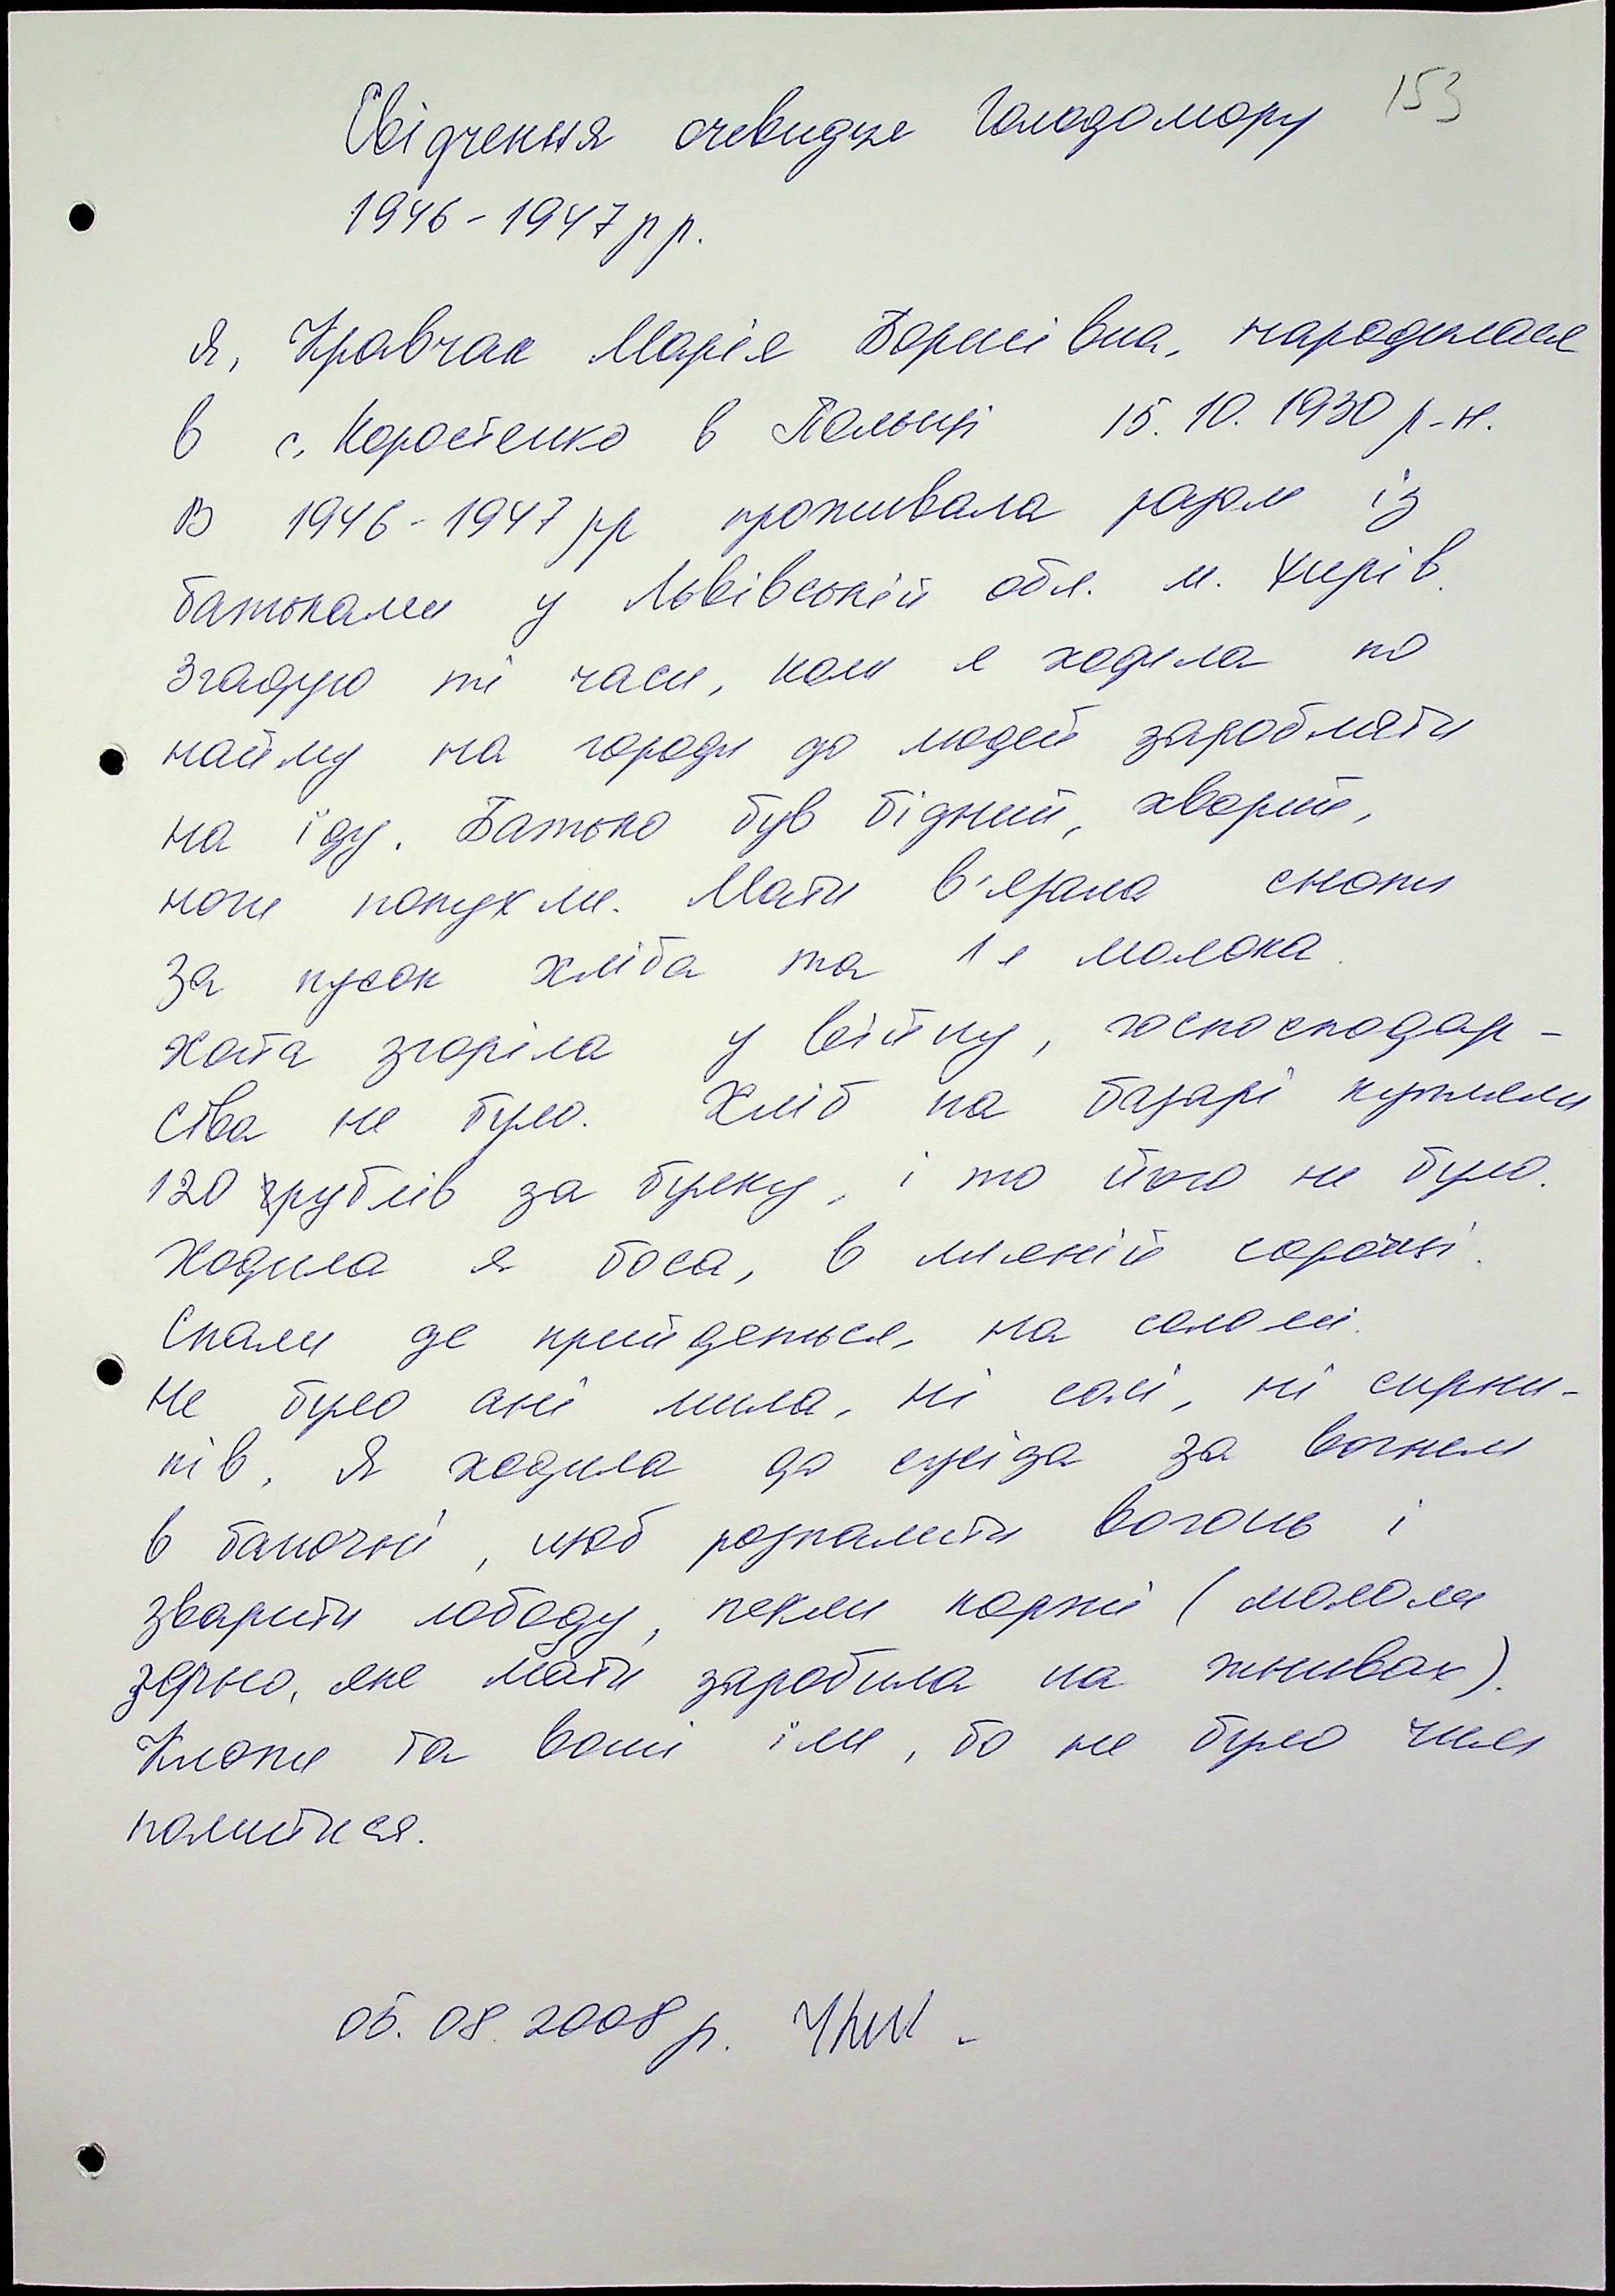 153
Свідчення очевидця Голодомору
1946-1947 рр.
Я, Кравчак Марія Борисівна, народилася
в с. Коростенко в Польщі 15.10.1930 р-н.
В 1946-1947 рр проживала разом із
батьками у Львівській обл. м. Хирів.
Згадую ті часи, коли я ходила по
найму на городи до людей заробляти
на їду. Батько був бідний, хворий,
ноги попухли. Мати в'язала снопи
за кусок хліба та 1 л молока.
Хата згоріла у війну, госпосподар-
ства не було. Хліб на базарі купляли
120 рублів за булку, і то його не було.
Ходила я боса, в лляній сорочці.
Спали де прийдеться, на соломі.
Не було ані мила, ні солі, ні сірни-
ків. Я ходила до сусіда за вогнем
в баночці, щоб розпалити вогонь і
зварити лободу, пекли коржі (мололи
зерно, яке мати заробила на жнивах).
Клопи та воші їли, бо не було чим
помитися.
05.08.2008 р.